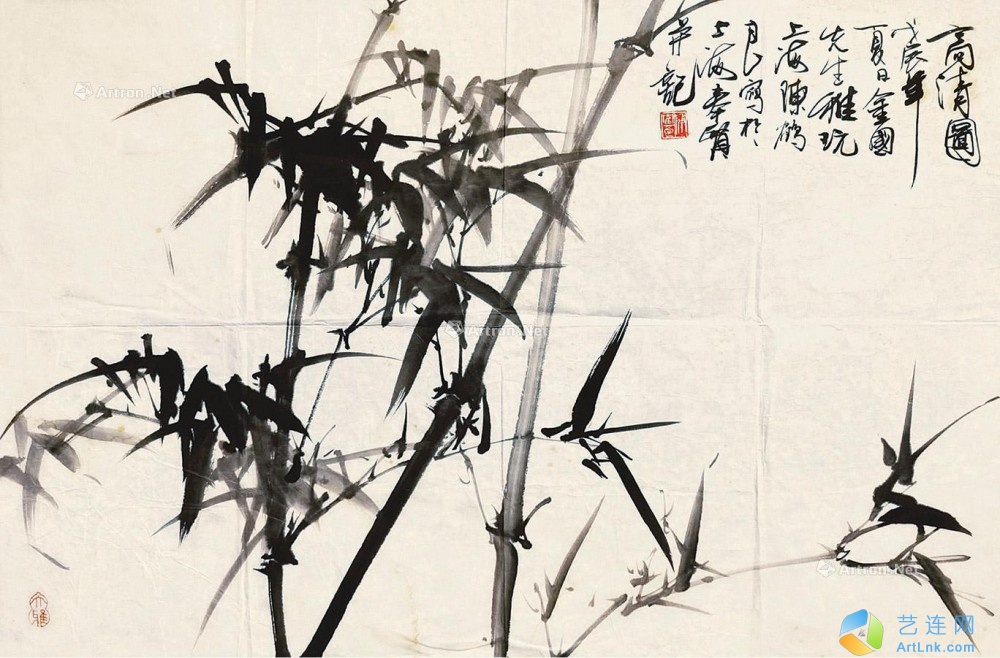 高清圖
戊辰年
夏日金國
先生雅玩
上海陳鶴
良寫於
上海奉賢
并記
大雅
Artron.Net
Artron.Net
Artron.Net
艺连网
ArtLnk.com